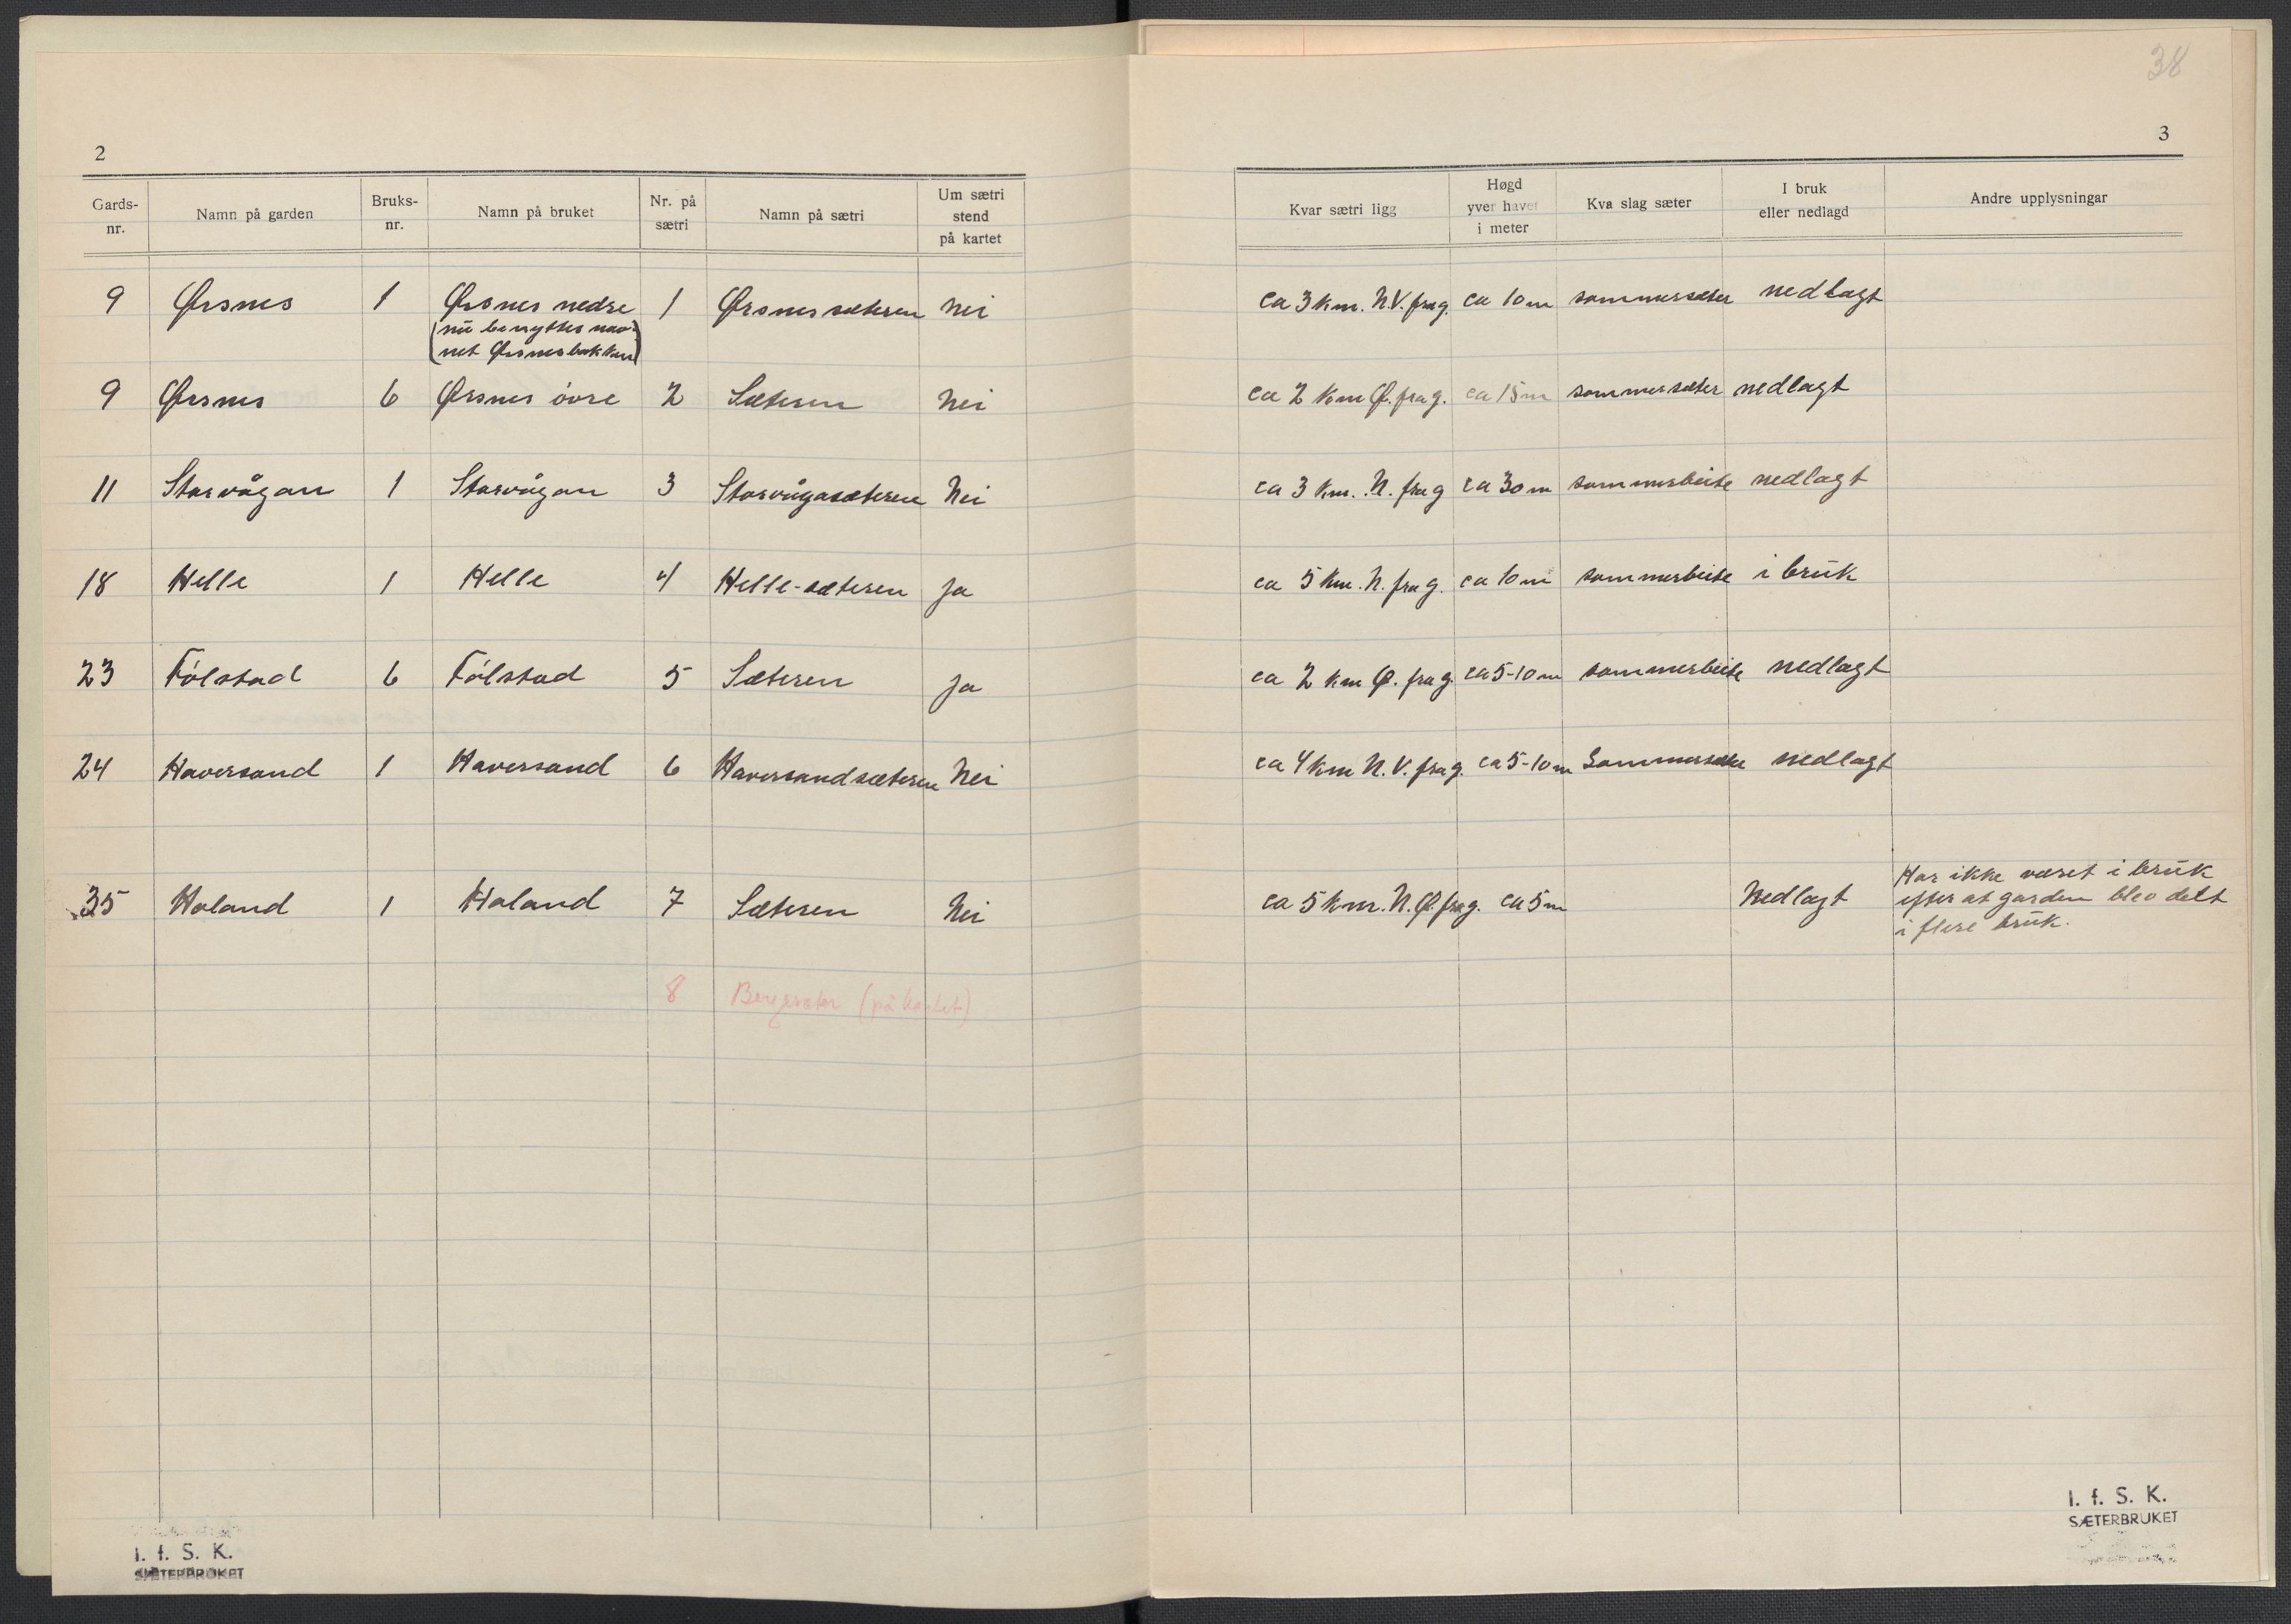 38
2
3
Gards-nr. Namn på garden Bruks-nr. Namn på bruket Nr. på sætri Namn på sætri Um sætri stend på kartet Kvar sætri ligg Høgd yver havet i meter Kva slag sæter I bruk eller nedlagd Andre upplysningar
9 Ørsnes 1 Ørsnes nedre 1 Ørsnessæteren Nei ca 3 km. N.V. fra g. ca 10 m sommersæter nedlagt
(nu benyttes nav-
net Ørsnesbakken)
9 Ørsnes 6 Ørsnes övre 2 Sæteren Nei ca 2 km Ø. fra g. ca 15 m sommersæter nedlagt
11 Storvågan 1 Storvågan 3 Storvågasæteren Nei ca 3 km. N. fra g ca 30 m sommerbeite nedlagt
18 Helle 1 Helle 4 Helle-sæteren ja ca 5 km. N. fra g. ca 10 m sommerbeite i bruk
23 Fölstad 6 Fölstad 5 Sæteren ja ca 2 km Ø. fra g. ca 5-10 m sommerbeite nedlagt
24 Haversand 1 Haversand 6 Haversandsæteren Nei ca 4 km N.V. fra g. ca 5-10 m Sommersæter nedlagt
35 Holand 1 Holand 7 Sæteren Nei ca 5 km. N.Ø. fra g. ca 5 m Nedlagt Har ikke været i bruk
efter at garden blev delt
i flere bruk.
8 Bergsæter (på kartet)
I. f. S. K.
SÆTERBRUKET
I. f. S. K.
SÆTERBRUKET